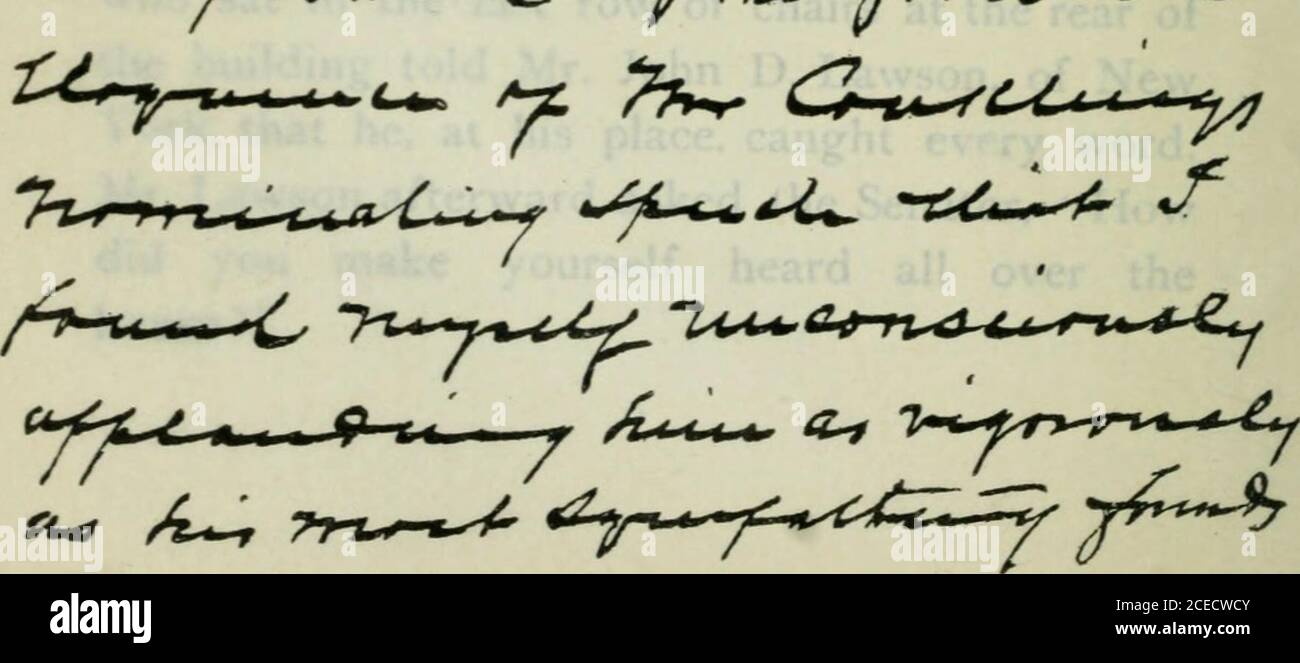 eloquence of Mr Conkling's
nominating speech that I
found myself unconsciously
applauding him as vigorously
as his most sympathizing friends
who sat in the last row of chairs at the rear of
the building told Mr. John D. Lawson of New
York that he, at his place. caught every word.
Mr. Lawson afterward asked the Senator, "How
did you make yourself heard all over the
alamy
Image ID: 2CECWCY
www.alamy.com